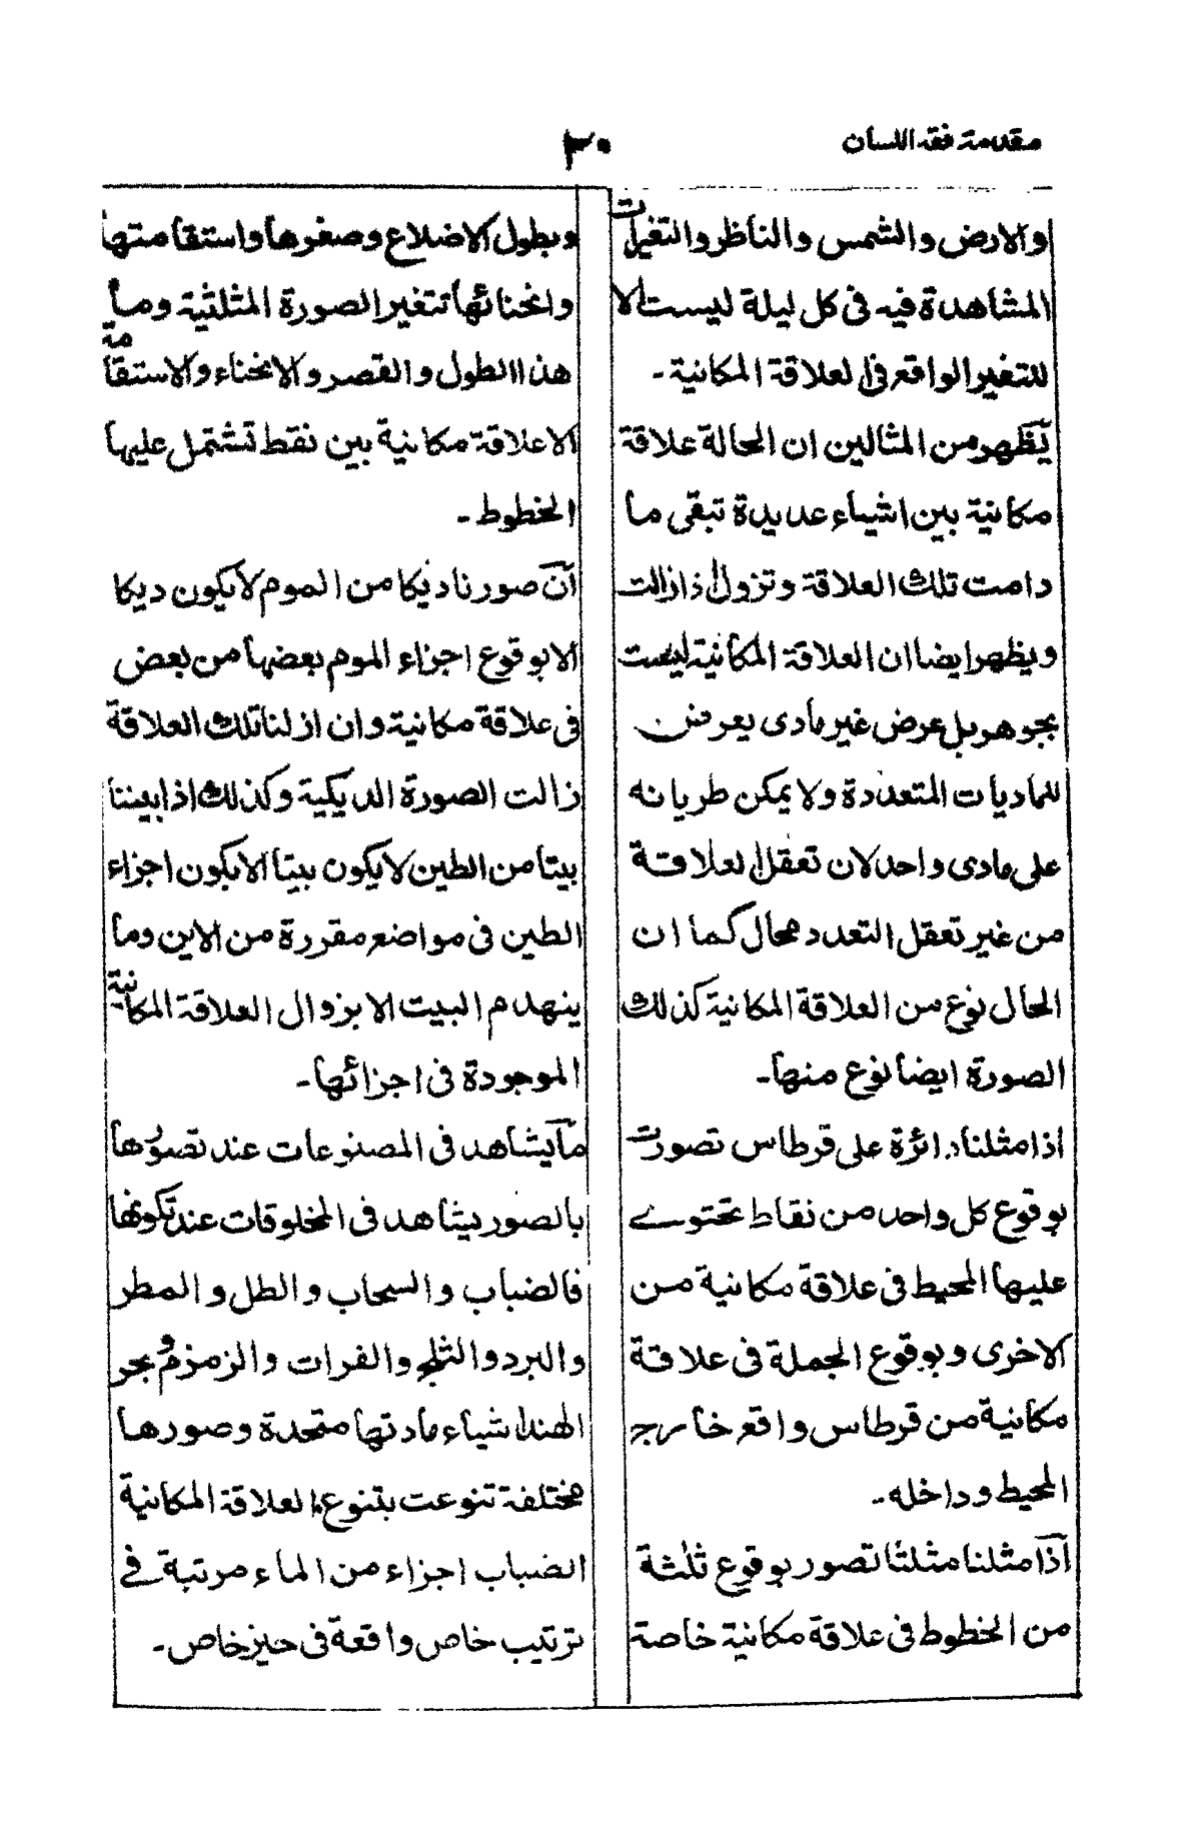 مقدمة فقه اللسان
٣٠
والارض والشمس والناظر والتغيرات
المشاهدة فيه فى كل ليلة ليست الا
للتغير الواقع فى العلاقة المكانية۔
يظهر من المثالين ان الحالة علاقة
مكانية بين اشياء عديدة تبقى ما
دامت تلك العلاقة وتزول اذا زالت
ويظهر ايضا ان العلاقة المكانية ليست
بجوهر بل عرض غير مادى يعرض
للماديات المتعددة ولا يمكن طريانه
على مادى واحد لان تعقل العلاقة
من غير تعقل التعدد محال كما ان
الحال نوع من العلاقة المكانية كذلك
الصورة ايضا نوع منها۔
اذا مثلنا دائرة على قرطاس تصورت
بوقوع كل واحد من نقاط تحتوے
عليها المحيط فى علاقة مكانية من
الاخرى وبوقوع الجملة فى علاقة
مكانية من قرطاس واقع خارج
المحيط وداخله۔
اذا مثلنا مثلثا تصور بوقوع ثلثة
من الخطوط فى علاقة مكانية خاصة
وبطول الاضلاع وصغرها واستقامتها
وانحنائها تتغير الصورة المثلثية وما
هذا الطول والقصر والانحناء والاستقامة
الا علاقة مكانية بين نقط تشتمل عليها
الخطوط۔
ان صورنا ديكا من الموم لا يكون ديكا
الا بوقوع اجزاء الموم بعضها من بعض
فى علاقة مكانية وان ازلنا تلك العلاقة
زالت الصورة الديكية وكذلك اذا بيننا
بيتا من الطين لا يكون بيتا الا بكون اجزاء
الطين فى مواضع مقررة من الاين وما
ينهدم البيت الا بزوال العلاقة المكانية
الموجودة فى اجزائها۔
ما يشاهد فى المصنوعات عند تصورها
بالصور يشاهد فى المخلوقات عند تكونها
فالضباب والسحاب والطل والمطر
والبرد والثلج والفرات والزمزم وبحر
الهند اشياء مادتها متحدة وصورها
مختلفة تنوعت بتنوع العلاقة المكانية
الضباب اجزاء من الماء مرتبة فے
ترتيب خاص واقعة فى حيز خاص۔